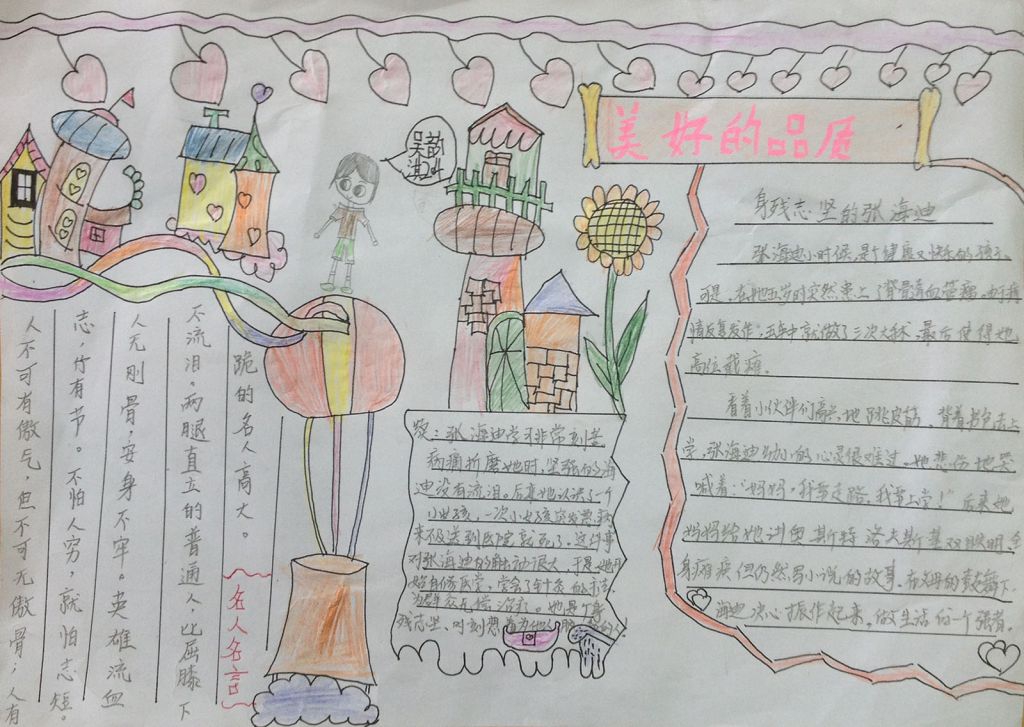 美好的品质
吴韵
身残志坚的张海迪
张海迪小时候,是个健康又快乐的孩子,
可是,在她五岁时突然患上了脊髓血管瘤,由于病
情反复发作,五年中就做了三次大手术,最后使得她
高位截瘫。
看着小伙伴们高兴地跳皮筋、背着书包去上
学,张海迪幼小的心灵很难过。她悲伤地哭
喊着:“妈妈,我要走路,我要上学!”后来她
妈妈给她讲奥斯特洛夫斯基双眼失明、全
身瘫痪但仍然写小说的故事,在父母的鼓舞下,
海迪决心振作起来,做生活的一个强者。
张海迪学习非常刻苦
病痛折磨她时,坚强的海
迪没有流泪。后来她认识了一个
小女孩,一次小女孩突发急病
来不及送到医院就死了。这件事
对张海迪的触动很大,于是她开
始自修医学,学会了针灸的方法,
为群众无偿治疗。她是个身
残志坚,时刻想着为他人
名人名言
人不可有傲气,但不可无傲骨;人有
志,竹有节。不怕人穷,就怕志短。
人无刚骨,安身不牢。英雄流血
不流泪。两腿直立的普通人,比屈膝下
跪的名人高大。